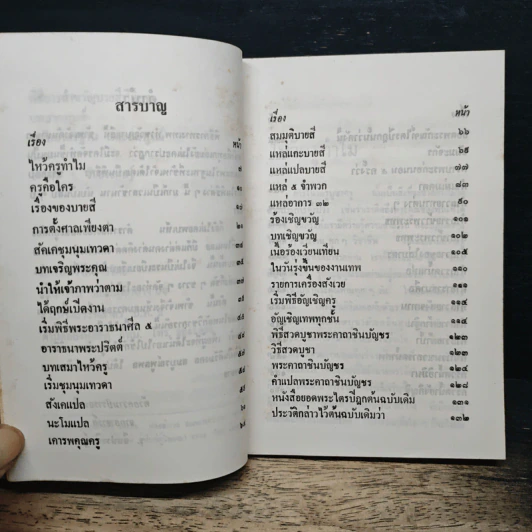 สารบาญ
เรื่อง หน้า
ไหว้ครูทำไม
ครูคือใคร
เรื่องของบายสี
การตั้งศาลเพียงตา
สัคเคชุมนุมเทวดา
บทเจริญพระคุณ
นำให้เข้าภาพว่าตาม
ได้ฤกษ์เปิดงาน
เริ่มพิธีพระอาราธนาศีล ๕
อาราธนาพระปริตต์
บทเสมาไหว้ครู
เริ่มชุมนุมเทวดา
สังเคแปล
นะโมแปล
เคารพคุณครู
เรื่อง หน้า
สมมุติบายสี ๖๖
แหล่แกะบายสี ๖๙
แหล่แปลบายสี ๗๗
แหล่ ๕ จำพวก ๘๓
แหล่อาการ ๓๒ ๙๐
ร้องเชิญขวัญ ๑๐๑
บทเชิญขวัญ ๑๐๒
เนื้อร้องเวียนเทียน ๑๐๕
ในวันรุ่งขึ้นของงานเทพ ๑๑๐
รายการเครื่องสังเวย ๑๑๑
เริ่มพิธีอัญเชิญครู ๑๑๔
อัญเชิญเทพทุกชั้น ๑๑๔
พิธีสวดบูชาพระคาถาชินบัญชร ๑๒๓
วิธีสวดบูชา ๑๒๓
พระคาถาชินบัญชร ๑๒๔
คำแปลพระคาถาชินบัญชร ๑๒๘
หนังสือยอดพระไตรปิฎกต้นฉบับเดิม ๑๓๑
ประวัติกล่าวไว้ต้นฉบับเดิมว่า ๑๓๒